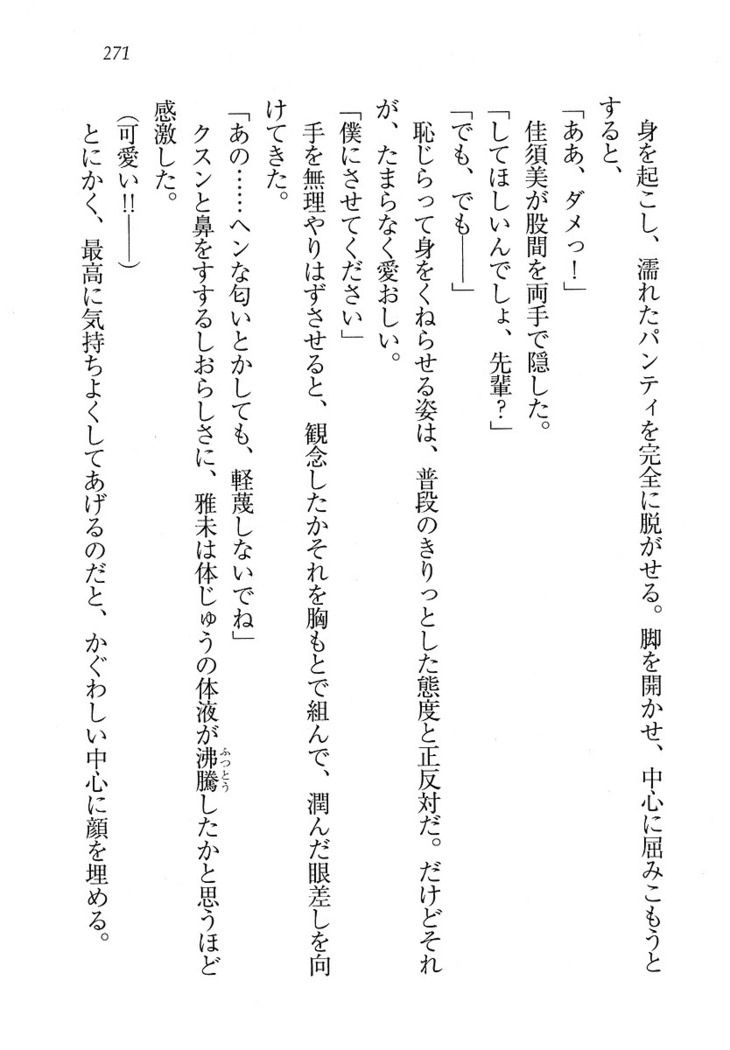 271
身を起こし、濡れたパンティを完全に脱がせる。脚を開かせ、中心に屈みこもうと
すると、
「ああ、ダメっ！」
佳須美が股間を両手で隠した。
「してほしいんでしょ、先輩？」
「でも、でも――」
恥じらって身をくねらせる姿は、普段のきりっとした態度と正反対だ。だけどそれ
が、たまらなく愛おしい。
「僕にさせてください」
手を無理やりはずさせると、観念したかそれを胸もとで組んで、潤んだ眼差しを向
けてきた。
「あの……ヘンな匂いとかしても、軽蔑しないでね」
クスンと鼻をすするしおらしさに、雅未は体じゅうの体液が沸騰ふっとうしたかと思うほど
感激した。
（可愛い!!――）
とにかく、最高に気持ちよくしてあげるのだと、かぐわしい中心に顔を埋める。